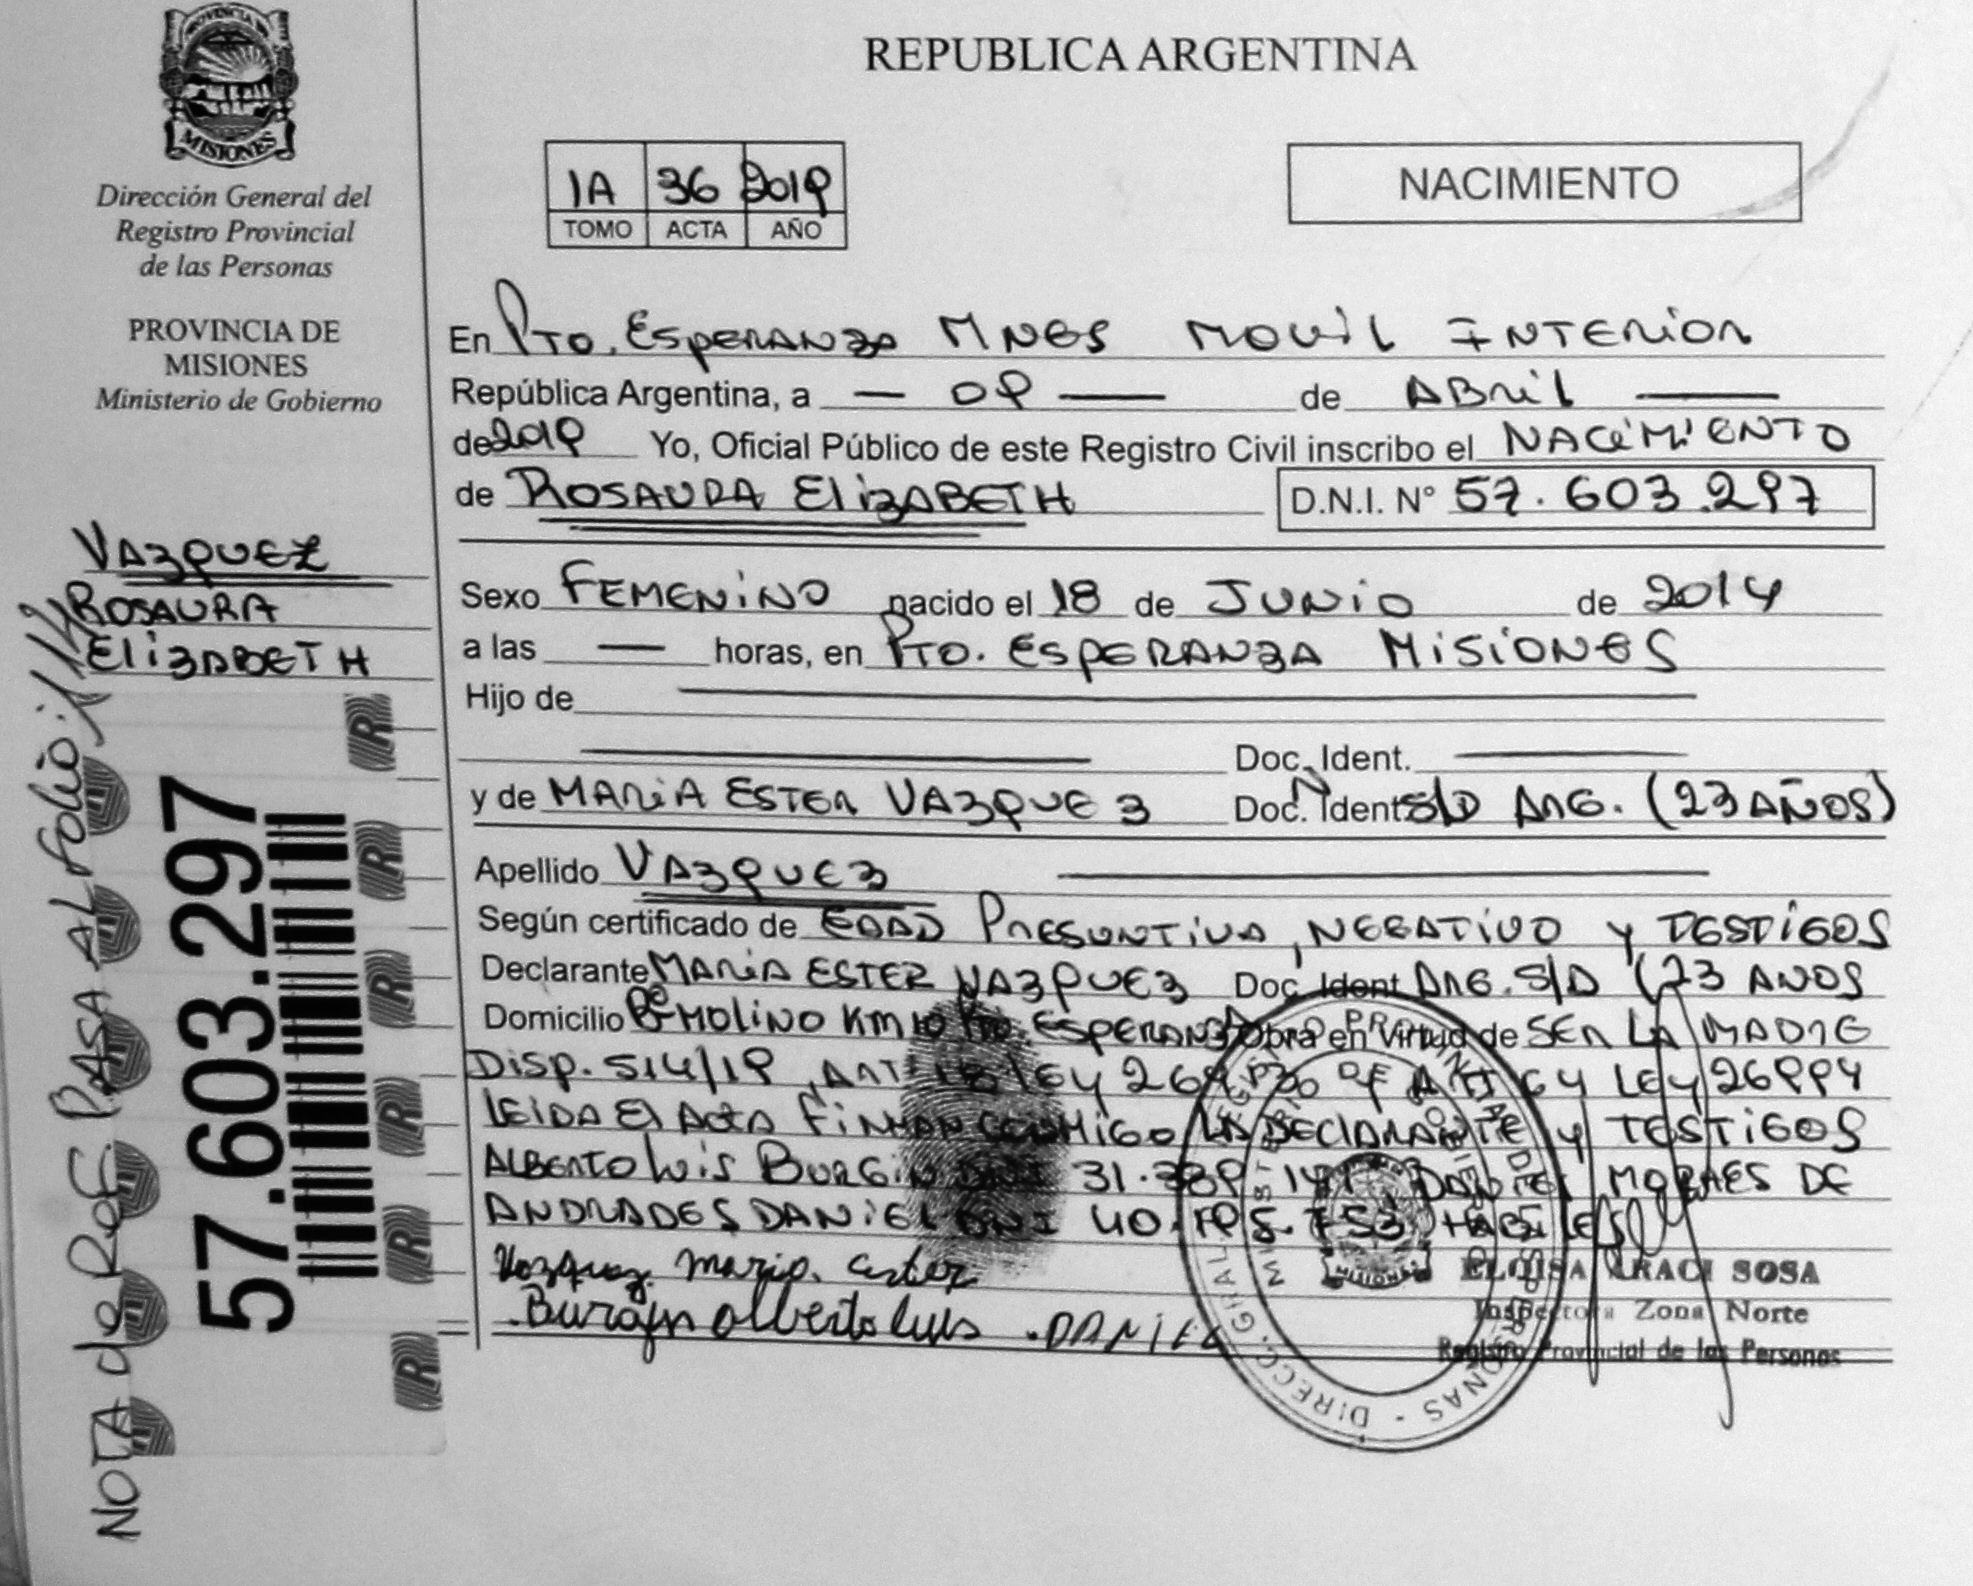 PROVINCIA DE
MISIONES
Dirección General del
Registro Provincial
de las Personas
PROVINCIA DE
MISIONES
Ministerio de Gobierno
VAZQUEZ
ROSAURA
ElizABETH
57.603.297
NOTA de REF. PASA AL folio
REPUBLICA ARGENTINA
1A 36 2019
TOMO ACTA AÑO
NACIMIENTO
En Pto. EspERANZA MNES MOVIL INTERIOR
República Argentina, a — 09 — de ABRIL —
de 2019 Yo, Oficial Público de este Registro Civil inscribo el NACIMIENTO
de ROSAURA ElizABETH D.N.I. N° 57.603.297
Sexo FEMENINO nacido el 18 de JUNIO de 2014
a las — horas, en PTO. ESPERANZA MISIONES
Hijo de
Doc. Ident.
y de MARIA ESTER VAZQUEZ Doc. Ident S/D ARG. (23 AÑOS)
Apellido VAZQUEZ
Según certificado de EDAD PRESUNTIVA, NEGATIVO y TESTIGOS
Declarante MARIA ESTER VAZQUEZ Doc. Ident ARG. S/D (23 AÑOS
Domicilio Bº MOLINO KM 10 Pto. ESPERANZA Obra en Virtud de SER LA MADRE
DISP. 514/19, ART 18 LEY ART 64 LEY 26994
LEIDA El ACTA FIRMAN CONMIGO LA DECLARANTE y TESTIGOS
ALBERTO LUIS BURGIN DNI 31.389 MORAES DE
ANDRADES DANIEL DNI 40. HABILES
Vazquez Maria ester
Burgin Alberto luis . DANIEL
ELOISA ARACI SOSA
Inspectora Zona Norte
Registro Provincial de las Personas